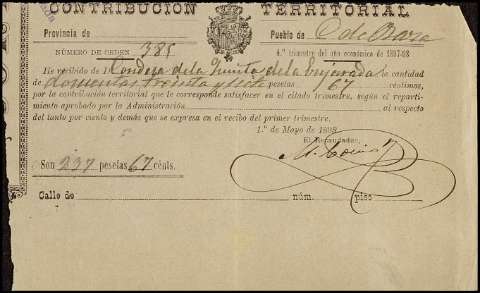 CONTRIBUCIÓN TERRITORIAL
Provincia de Pueblo de C. de Baza
NÚMERO DE ORDEN 385 4.º trimestre del año económico de 1897-98
He recibido de Condesa de la Quinta de la Enjarada la cantidad
de doscientas treinta y siete pesetas 67 céntimos,
por la contribución territorial que le corresponde satisfacer en el citado trimestre, según el reparti-
miento aprobado por la Administración al respecto
del tanto por ciento y demás que se expresa en el recibo del primer trimestre.
1.º de Mayo de 1898
El Recaudador,
SON 237 pesetas 67 cénts.
Calle de núm. piso